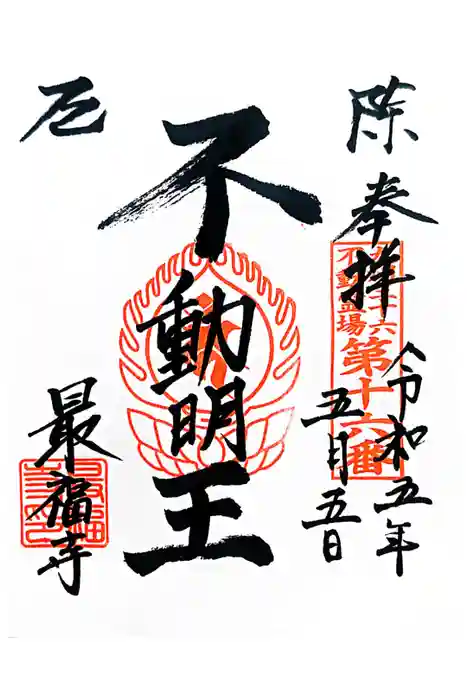 除
奉拝
不動霊場
第十六番
令和五年
五月五日
不動明王
厄
最福寺